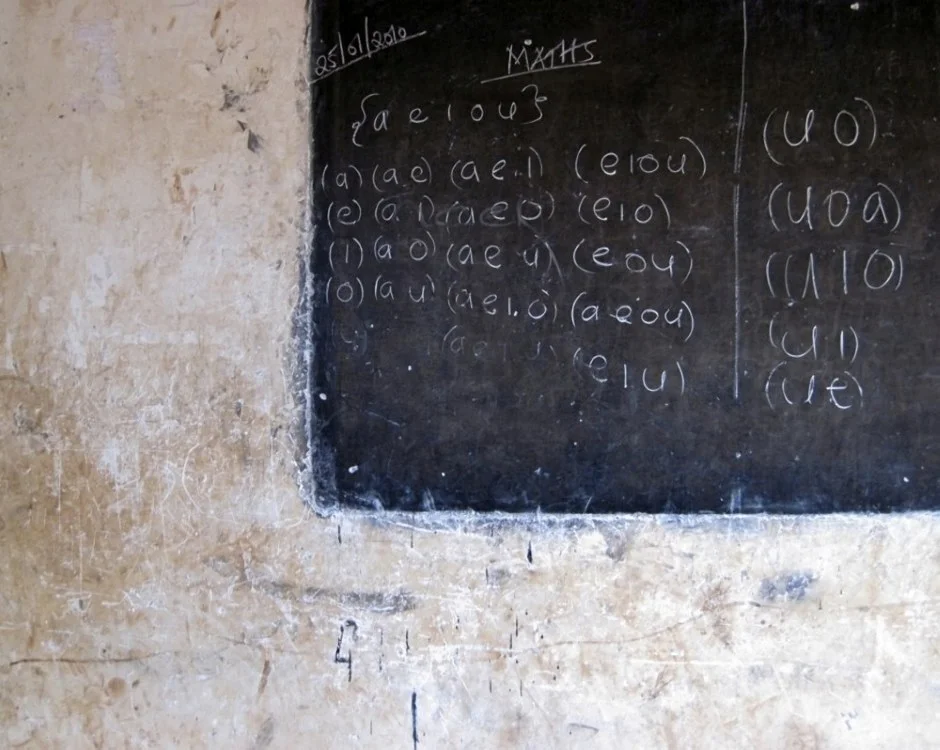 25/01/2010
MATHS
{a e i o u}
(a) (a e) (a e i) (e i o u)
(e) (a i) (a e o) (e i o)
(i) (a o) (a e u) (e o u)
(o) (a u) (a e i o) (a e o u)
(e i u)
(u o)
(u o a)
(u i)
(u e)
4